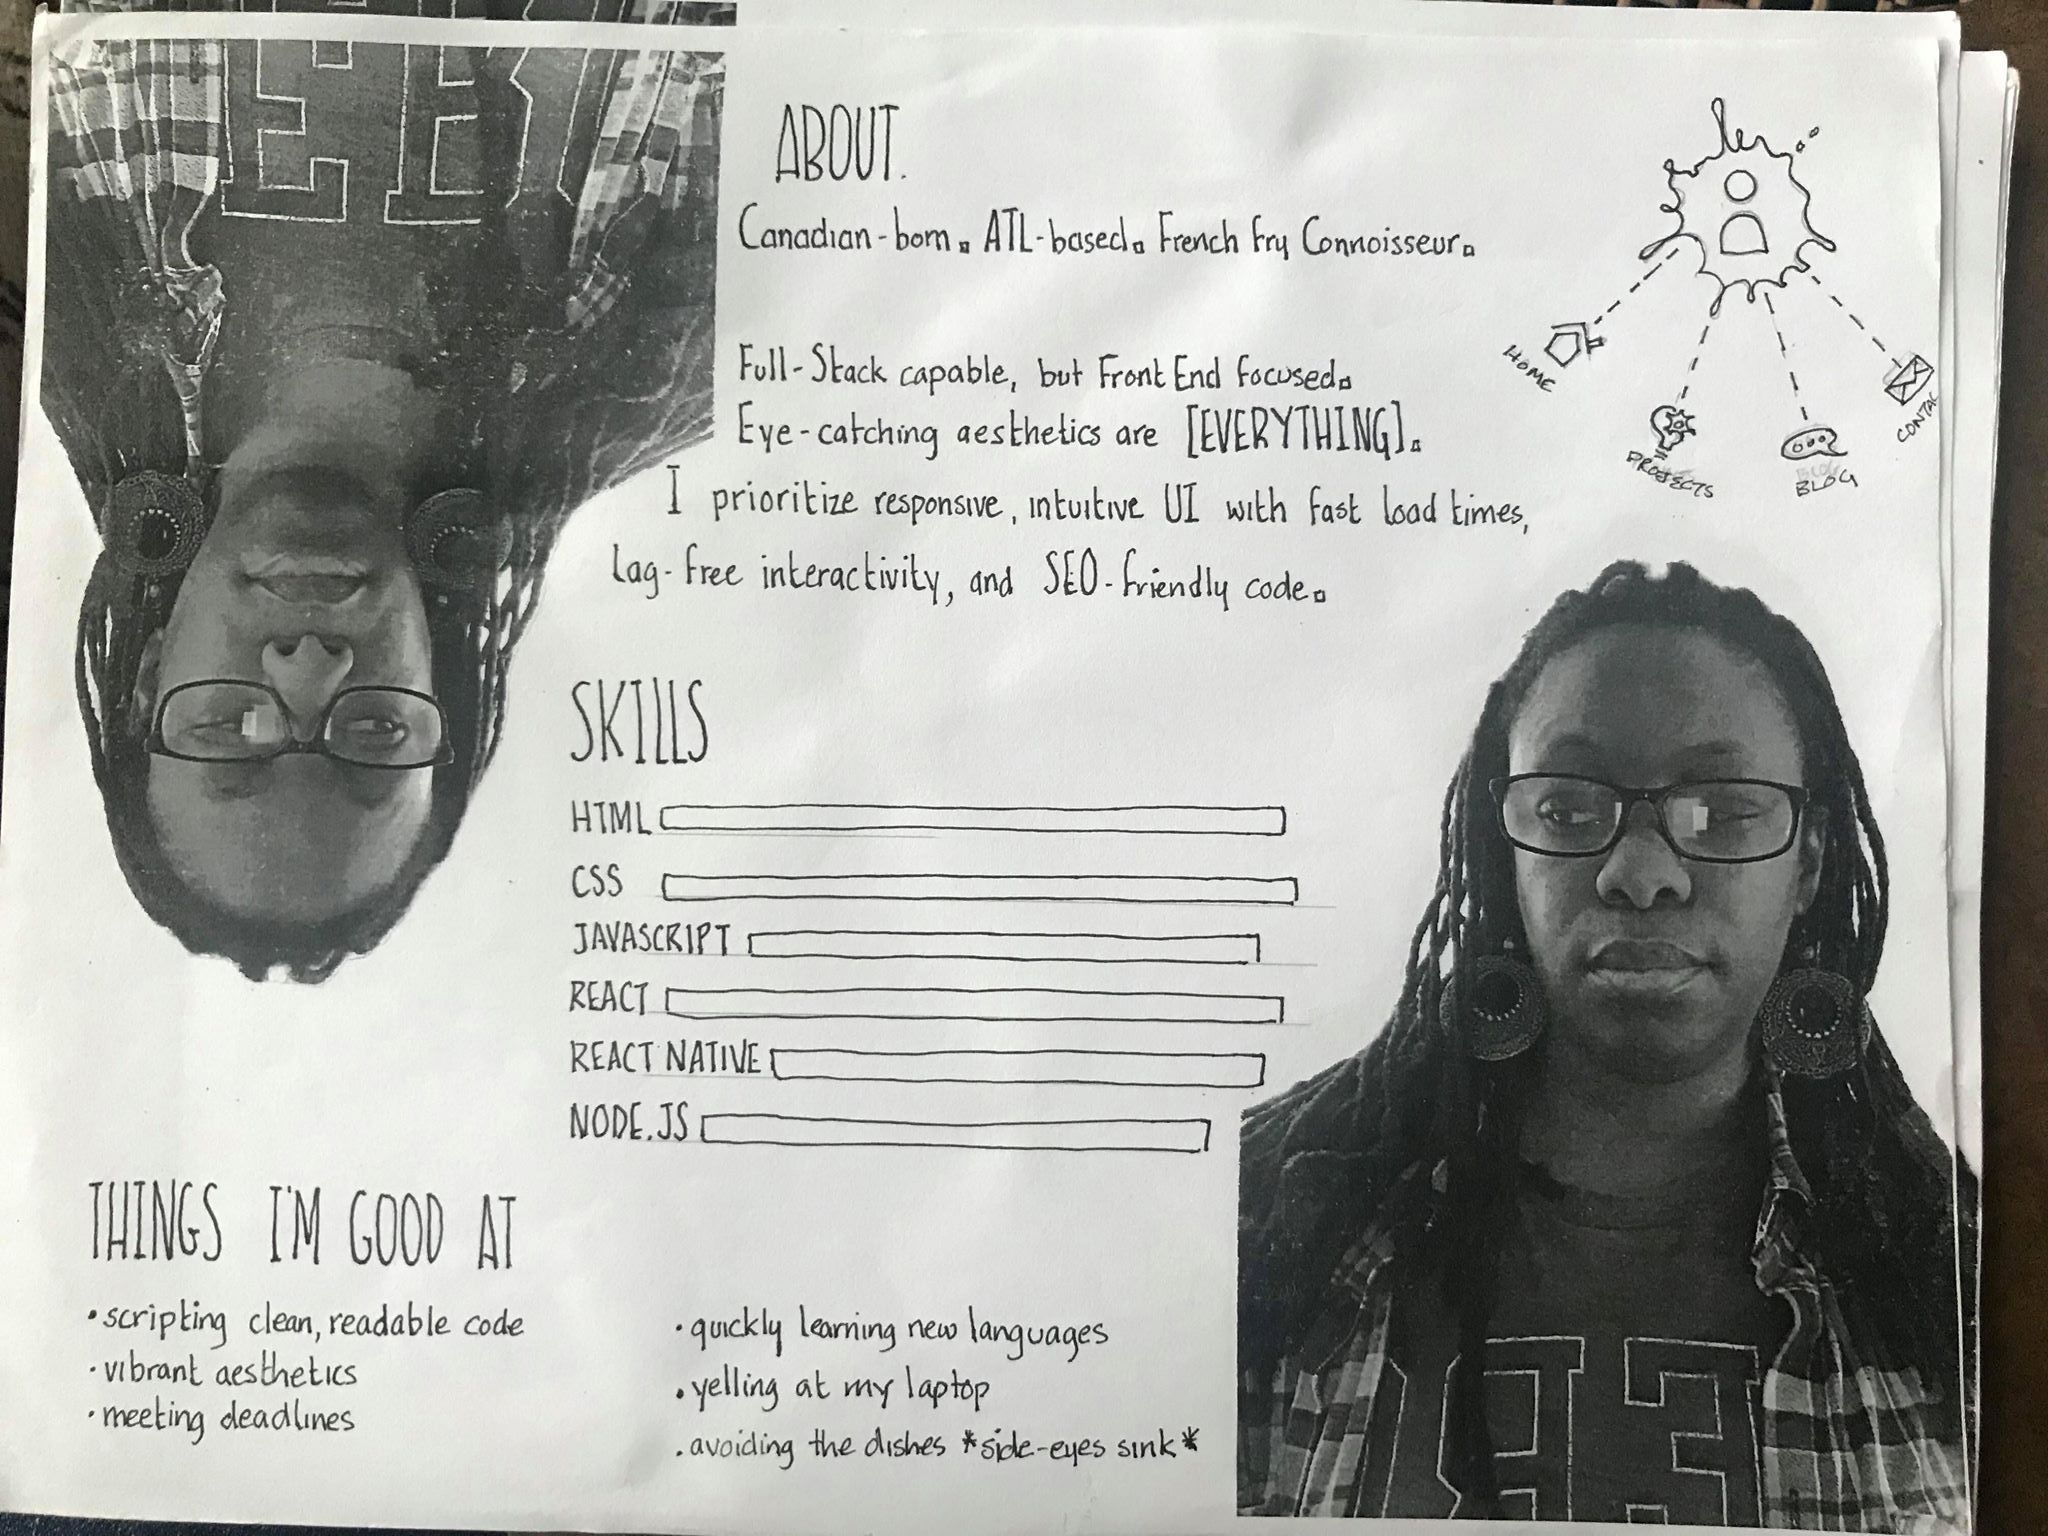 ABOUT.
Canadian-born. ATL-based. French Fry Connoisseur.
Full-Stack capable, but Front End focused.
Eye-catching aesthetics are [EVERYTHING].
I prioritize responsive, intuitive UI with fast load times,
lag-free interactivity, and SEO-friendly code.
HOME
PROJECTS
BLOG
CONTAC
SKILLS
HTML
CSS
JAVASCRIPT
REACT
REACT NATIVE
NODE.JS
THINGS I'M GOOD AT
• scripting clean, readable code
• vibrant aesthetics
• meeting deadlines
• quickly learning new languages
• yelling at my laptop
• avoiding the dishes *side-eyes sink*